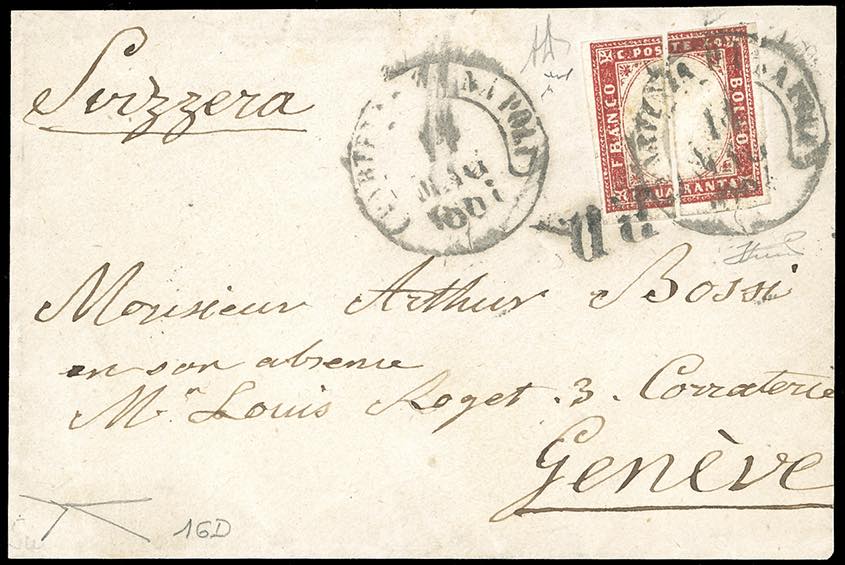 Svizzera
NAPOLI
MAG
1861
C. POSTE 40
FRANCO
BOLLO
QUARANTA
PARTENZA
P.D.
Monsieur Arthur Bossi
en son absence
Mr. Louis Roget. 3. Corraterie
Genève
16D